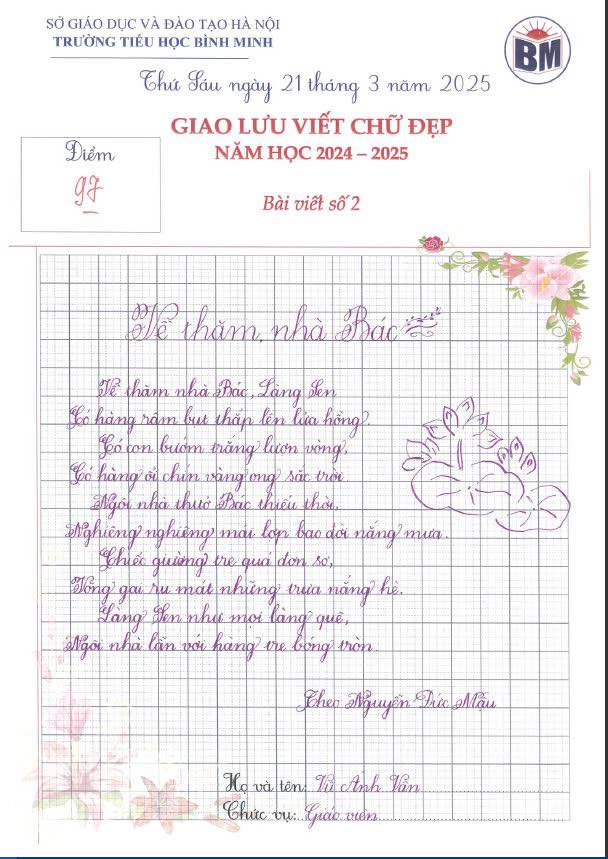 SỞ GIÁO DỤC VÀ ĐÀO TẠO HÀ NỘI
TRƯỜNG TIỂU HỌC BÌNH MINH
BM
Thứ Sáu ngày 21 tháng 3 năm 2025
GIAO LƯU VIẾT CHỮ ĐẸP
NĂM HỌC 2024 – 2025
Điểm
97
Bài viết số 2
Về thăm nhà Bác
Về thăm nhà Bác, Làng Sen
Có hàng râm bụt thắp lên lửa hồng.
Có con bướm trắng lượn vòng,
Có hàng ổi chín vàng ong sắc trời
Ngôi nhà thuở Bác thiếu thời,
Nghiêng nghiêng mái lợp bao đời nắng mưa.
Chiếc giường tre quá đơn sơ,
Võng gai ru mát những trưa nắng hè.
Làng Sen như mọi làng quê,
Ngôi nhà lẫn với hàng tre bóng tròn.
Theo Nguyễn Đức Mậu
Họ và tên: Vũ Anh Vân
Chức vụ: Giáo viên